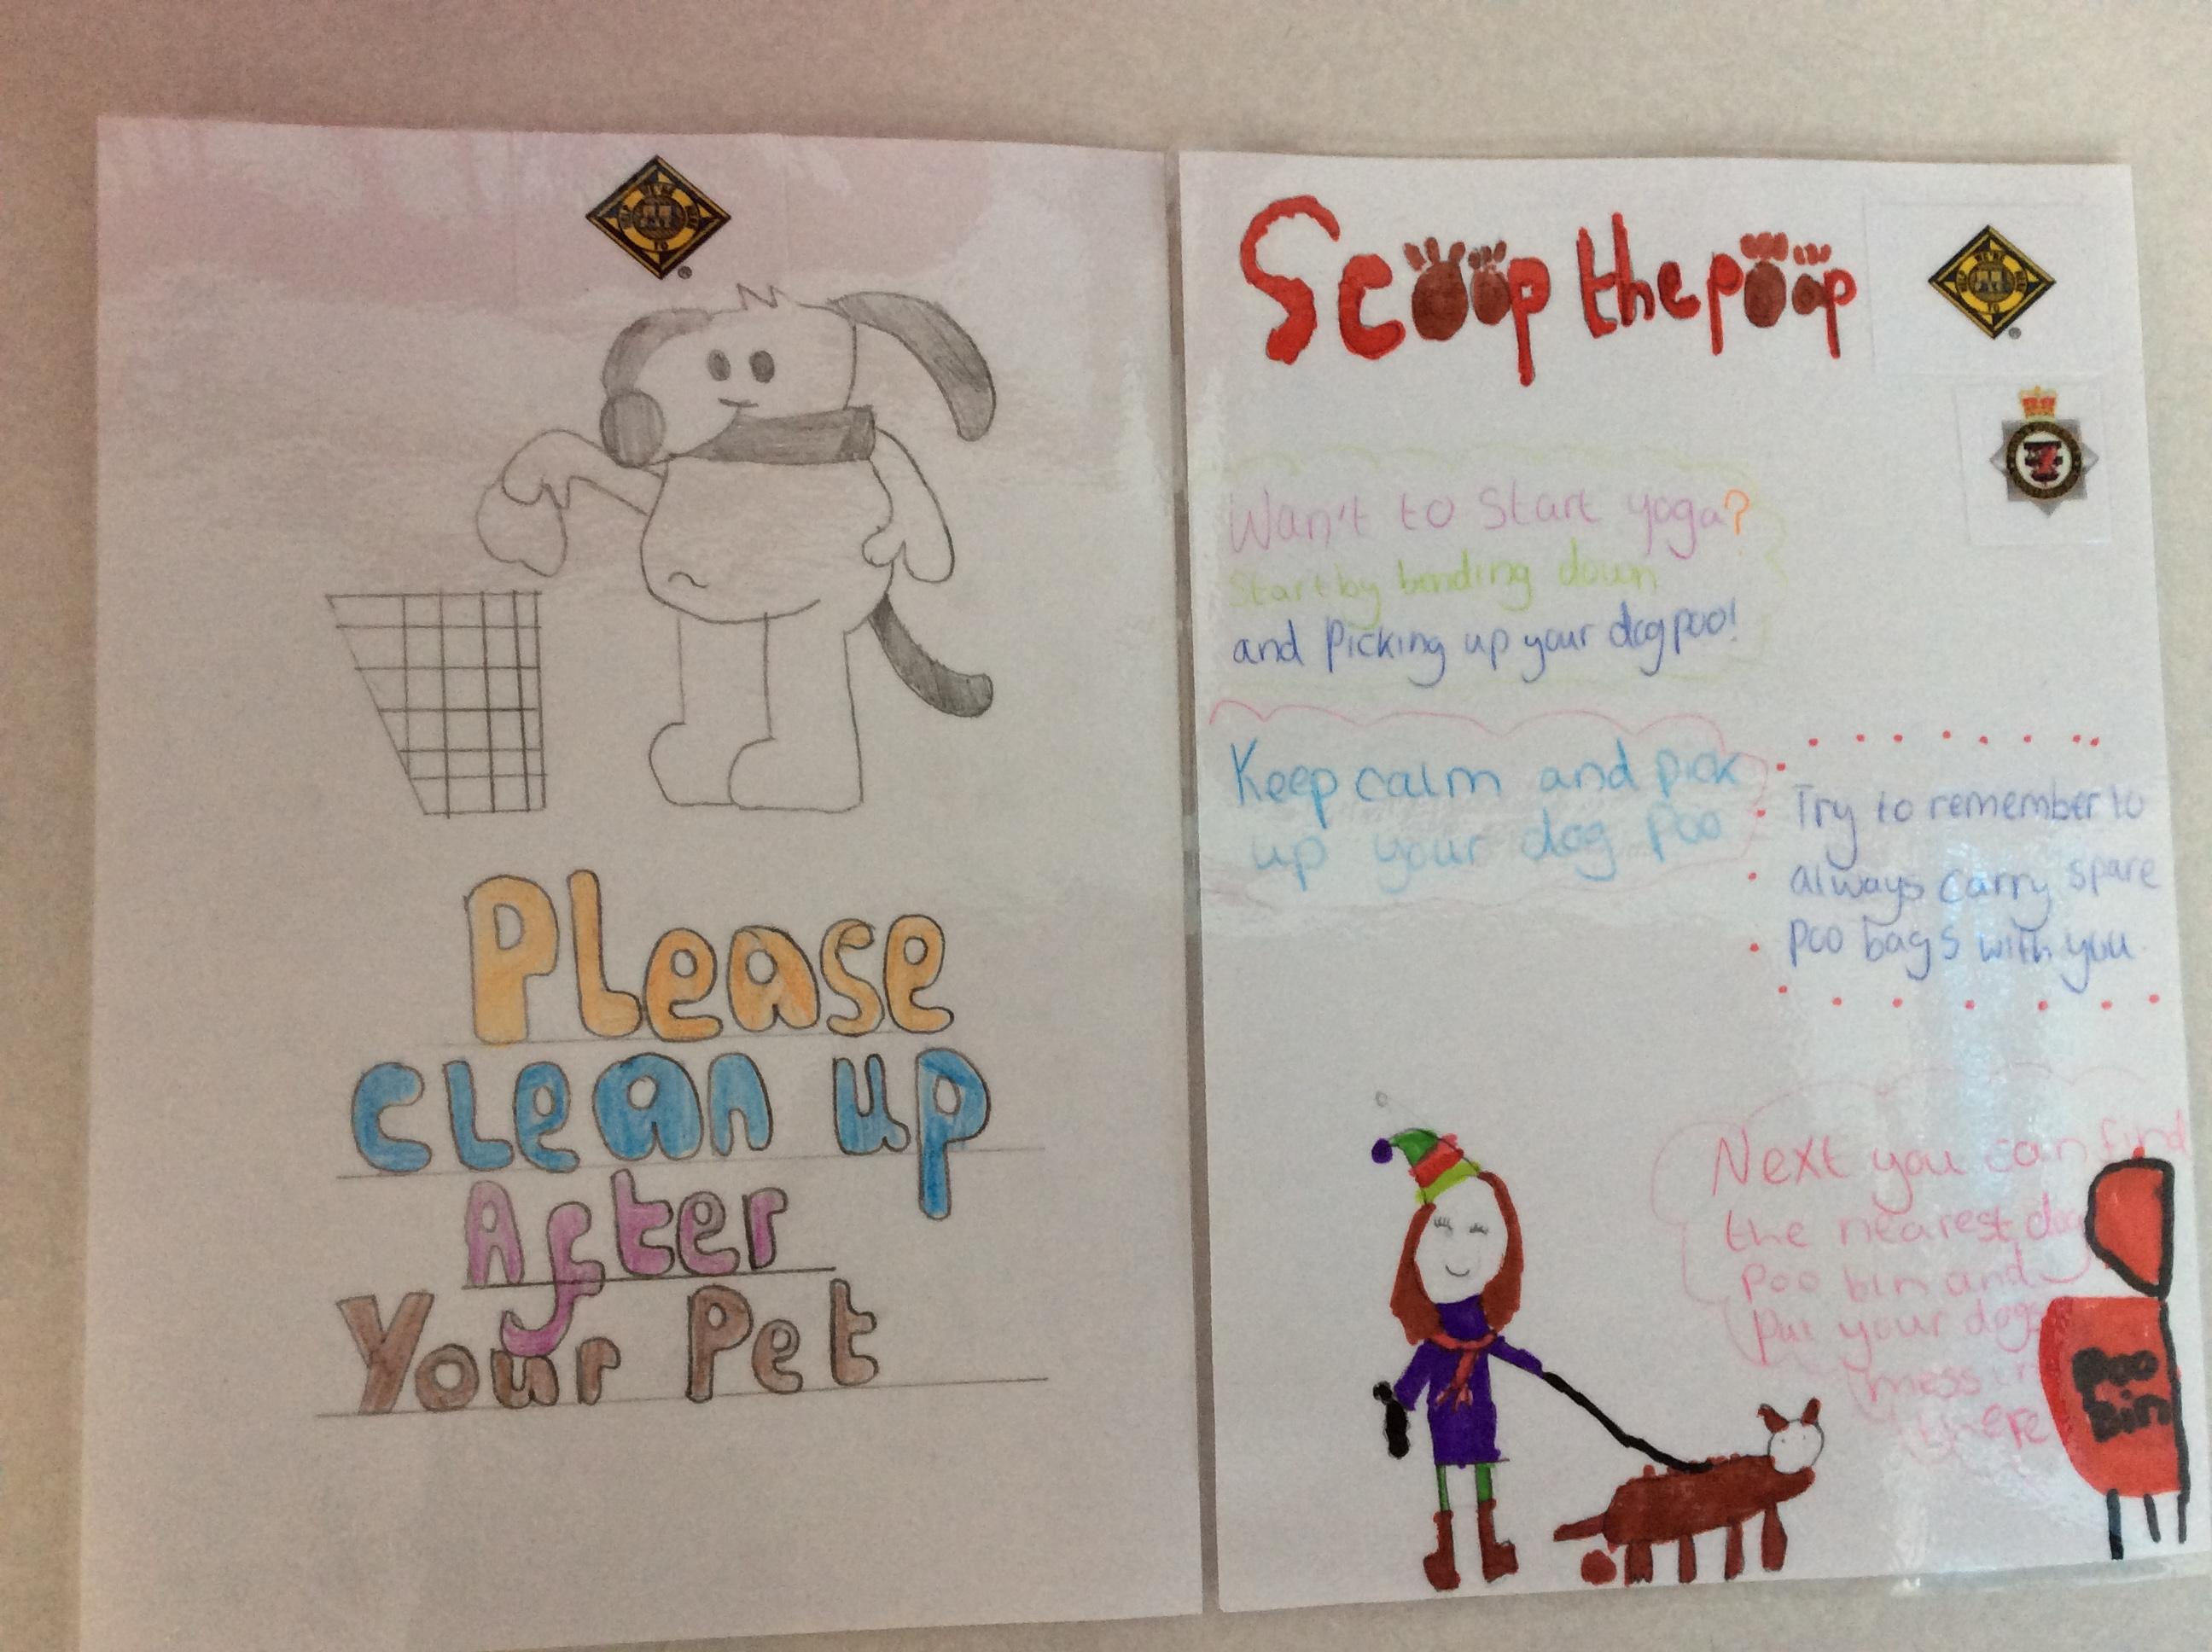 Please
clean up
After
Your Pet
Scoop the poop
Wan't to start yoga?
Start by bending down
and picking up your dog poo!
Keep calm and pick
up your dog poo
Try to remember to
always carry spare
poo bags with you
Next you can find
the nearest dog
poo bin and
put your dogs
mess in
there
Poo
Bin